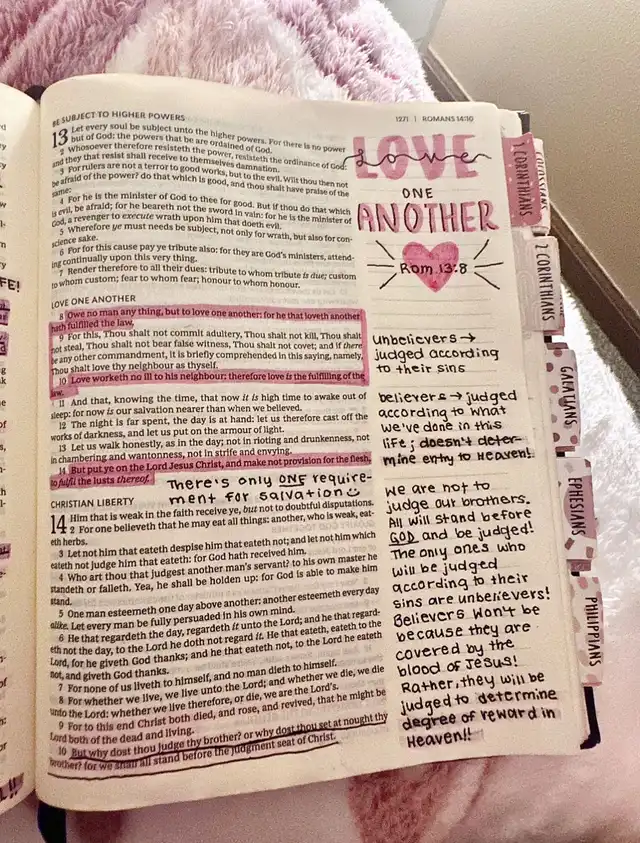 BE SUBJECT TO HIGHER POWERS
1271 | ROMANS 14:10
13 Let every soul be subject unto the higher powers. For there is no power
but of God: the powers that be are ordained of God.
2 Whosoever therefore resisteth the power, resisteth the ordinance of God:
and they that resist shall receive to themselves damnation.
3 For rulers are not a terror to good works, but to the evil. Wilt thou then not
be afraid of the power? do that which is good, and thou shalt have praise of the
same:
4 For he is the minister of God to thee for good. But if thou do that which
is evil, be afraid; for he beareth not the sword in vain: for he is the minister of
God, a revenger to execute wrath upon him that doeth evil.
5 Wherefore ye must needs be subject, not only for wrath, but also for con-
science sake.
6 For for this cause pay ye tribute also: for they are God's ministers, attend-
ing continually upon this very thing.
7 Render therefore to all their dues: tribute to whom tribute is due; custom
to whom custom; fear to whom fear; honour to whom honour.
LOVE ONE ANOTHER
8 Owe no man any thing, but to love one another: for he that loveth another
hath fulfilled the law.
9 For this, Thou shalt not commit adultery, Thou shalt not kill, Thou shalt
not steal, Thou shalt not bear false witness, Thou shalt not covet; and if there
be any other commandment, it is briefly comprehended in this saying, namely,
Thou shalt love thy neighbour as thyself.
10 Love worketh no ill to his neighbour: therefore love is the fulfilling of the
law.
11 And that, knowing the time, that now it is high time to awake out of
sleep: for now is our salvation nearer than when we believed.
12 The night is far spent, the day is at hand: let us therefore cast off the
works of darkness, and let us put on the armour of light.
13 Let us walk honestly, as in the day; not in rioting and drunkenness, not
in chambering and wantonness, not in strife and envying.
14 But put ye on the Lord Jesus Christ, and make not provision for the flesh,
to fulfil the lusts thereof.
There's only ONE require-
ment for salvation
CHRISTIAN LIBERTY
14 Him that is weak in the faith receive ye, but not to doubtful disputations.
2 For one believeth that he may eat all things: another, who is weak, eat-
eth herbs.
3 Let not him that eateth despise him that eateth not; and let not him which
eateth not judge him that eateth: for God hath received him.
4 Who art thou that judgest another man's servant? to his own master he
standeth or falleth. Yea, he shall be holden up: for God is able to make him
stand.
5 One man esteemeth one day above another: another esteemeth every day
alike. Let every man be fully persuaded in his own mind.
6 He that regardeth the day, regardeth it unto the Lord; and he that regard-
eth not the day, to the Lord he doth not regard it. He that eateth, eateth to the
Lord, for he giveth God thanks; and he that eateth not, to the Lord he eateth
not, and giveth God thanks.
7 For none of us liveth to himself, and no man dieth to himself.
8 For whether we live, we live unto the Lord; and whether we die, we die
unto the Lord: whether we live therefore, or die, we are the Lord's.
9 For to this end Christ both died, and rose, and revived, that he might be
Lord both of the dead and living.
10 But why dost thou judge thy brother? or why dost thou set at nought thy
brother? for we shall all stand before the judgment seat of Christ.
LOVE
Love
ONE
ANOTHER
Rom 13:8
unbelievers →
judged according
to their sins
believers → judged
according to what
we've done in this
life; doesn't deter-
mine entry to Heaven!
We are not to
judge our brothers.
All will stand before
GOD and be judged!
The only ones who
will be judged
according to their
sins are unbelievers!
Believers won't be
because they are
covered by the
blood of Jesus!
Rather, they will be
judged to determine
degree of reward in
Heaven!!
1 CORINTHIANS
2 CORINTHIANS
GALATIANS
EPHESIANS
PHILIPPIANS
COLOSSIANS